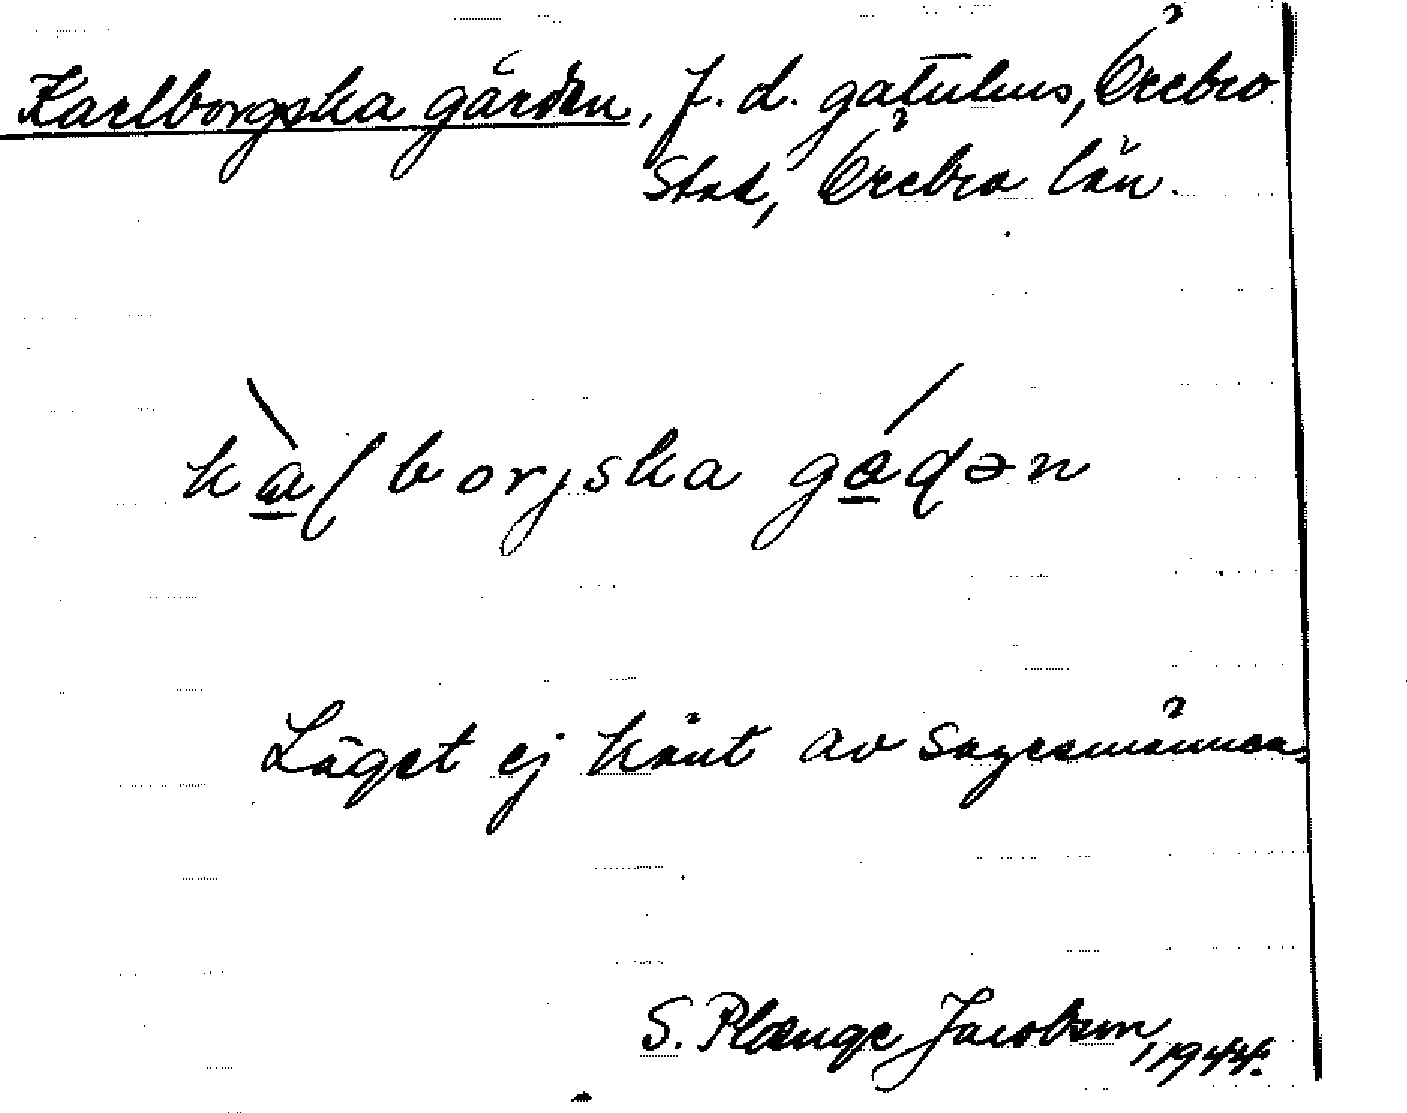 Karlborgska gården, f. d. gatuhus, Örebro
Stad, Örebro län.
kàlborjska gádən
Läget ej känt av sagesmännen.
S. Plænge Jacobson, 1944.